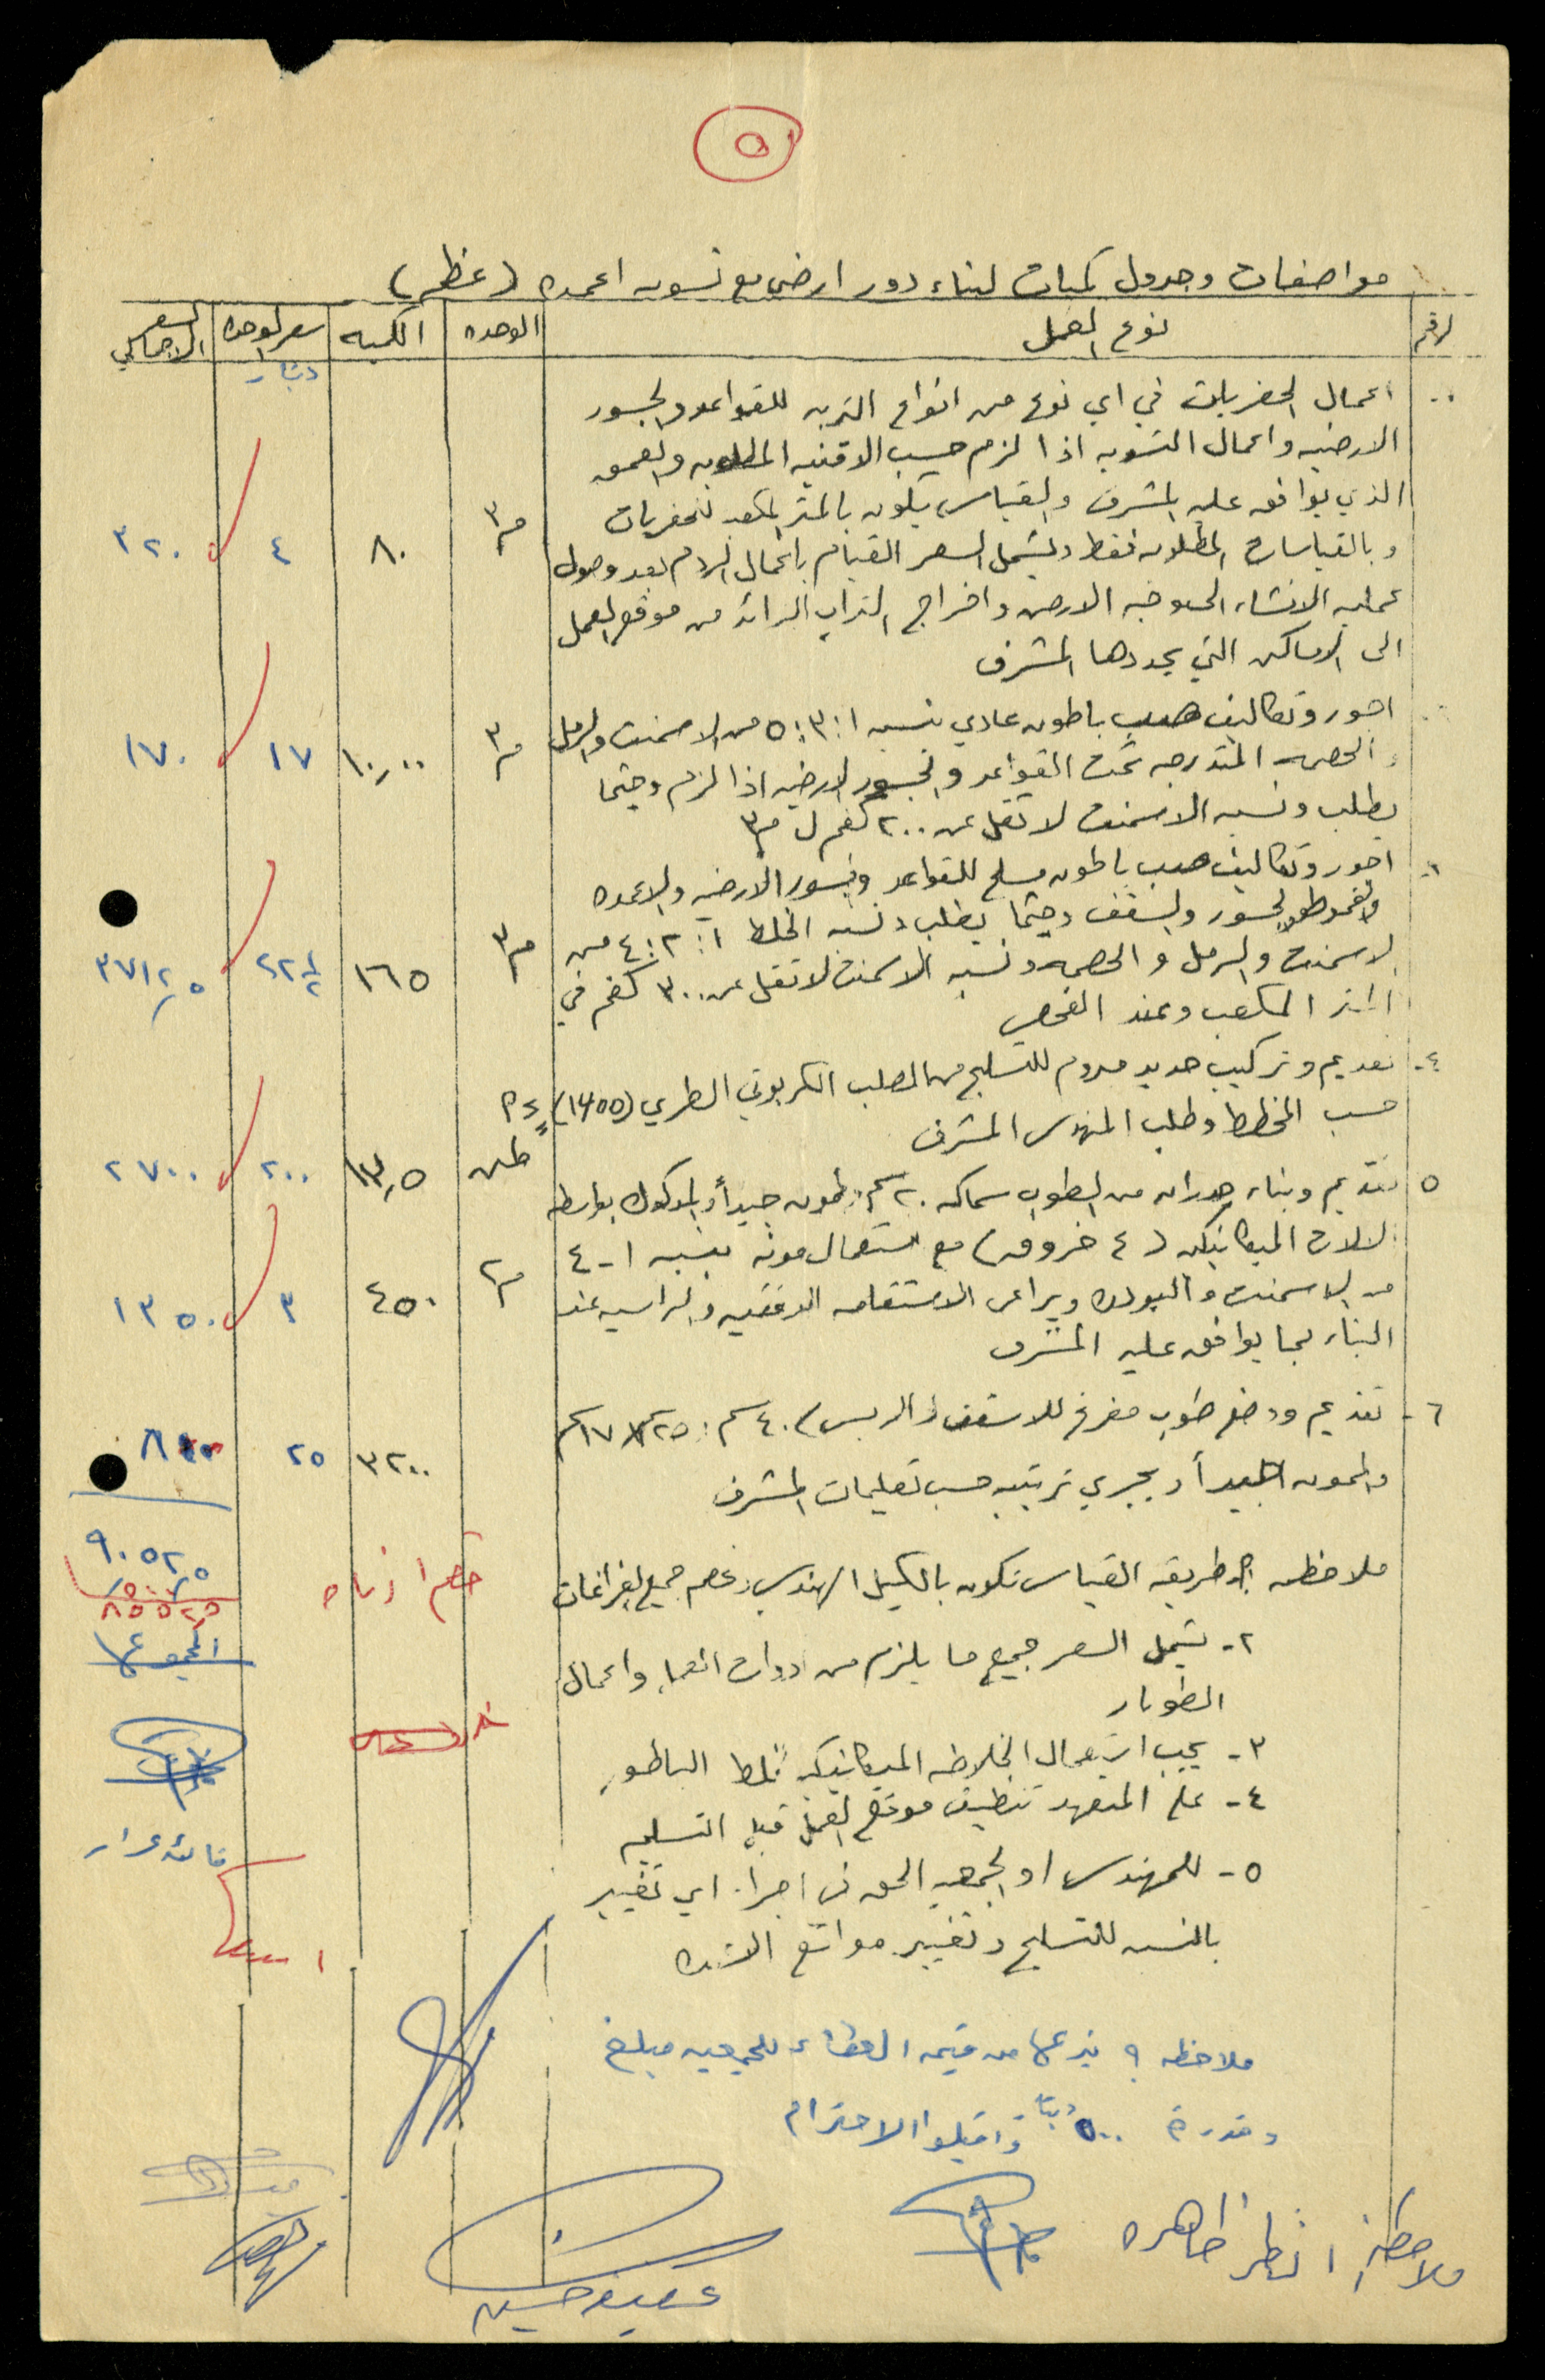 ٥
مواصفات وجدول كميات لبناء دور ارضي مع تسويه اعمده (عظم)
الرقم نوع العمل الوحده الكميه سعر الوحده السعر الاجمالي
دينار
اعمال الحفريات في اي نوع من انواع التربه للقواعد والجسور
الارضيه واعمال التسويه اذا لزم حسب الاقنيه المطلوبه والعمق
الذي يوافق عليه المشرف والقياس يكون بالمتر المكعب للحفريات م٣
وبالقياسات المطلوبه فقط ويشمل السعر القيام باعمال الردم بعد وصول ٨٠ ٤ ٣٢٠
عمليه الانشاء الى وجه الارض واخراج التراب الزائد من موقع العمل
الى الاماكن التي يحددها المشرف
اجور وتكاليف صب باطون عادي بنسبه ١:٣:٥ من الاسمنت والرمل م٣ ١٠,٠٠ ١٧ ١٧٠
والحصمه المتدرجه تحت القواعد والجسور الارضيه اذا لزم وحيثما
يطلب ونسبه الاسمنت لا تقل عن ٢٠٠ كغم ل م٣
اجور وتكاليف صب باطون مسلح للقواعد وجسور الارضيه والاعمده
والقموط والجسور والسقف وحيثما يطلب ونسبه الخلط ١:٢:٤ من م٣ ١٦٥ ٢٢½ ٣٧١٢,٥
الاسمنت والرمل والحصمه ونسبه الاسمنت لا تقل عن ٣٠٠ كغم في
المتر المكعب وعند الفحص
٤- تقديم وتركيب حديد مبروم للتسليح من الصلب الكربوني الطري (١٤٥٥)
حسب المخطط وطلب المهندس المشرف طن ١٣,٥ ٢٠٠ ٢٧٠٠
٥ تقديم وبناء جدران من الطوب سماكه ٢٠ سم الممون جيداً والمدكوك بواسطه
الالات الميكانيكيه (٤ خروق) مع استعمال مونه بنسبه ١-٤ م٢ ٤٥٠ ٣ ١٣٥٠
من الاسمنت والبودره ويراعى الاستقامه الافقيه والراسيه عند
البناء بما يوافق عليه المشرف
٦- تقديم ووضع طوب مفرغ للاسقف (الربس) ٤٠سم × ٢٥سم × ١٧سم
والممون جيداً ويجري ترتيبه حسب تعليمات المشرف ٣٢٠٠ ٢٥ ٨٠٠
٩٠٥٢,٥
ملاحظه ١- طريقه القياس تكون بالكيل الهندسي وخصم جميع الفراغات
٨٥٥٢,٥
٢- يشمل السعر جميع ما يلزم من ادوات العمل واعمال
الطوبار
٣- يجب استعمال الخلاطه الميكانيكيه لخلط الباطون
٤- على المتعهد تنظيف موقع العمل قبل التسليم
٥- للمهندس او الجمعيه الحق في اجراء اي تغيير
بالنسبه للتسليح وتغيير مواقع الاعمده
ملاحظه يتبرع من قيمه العطاء للجمعيه مبلغ
وقدره ٥٠٠ دينار واقبلوا الاحترام
ملاحظه انظر ظاهره